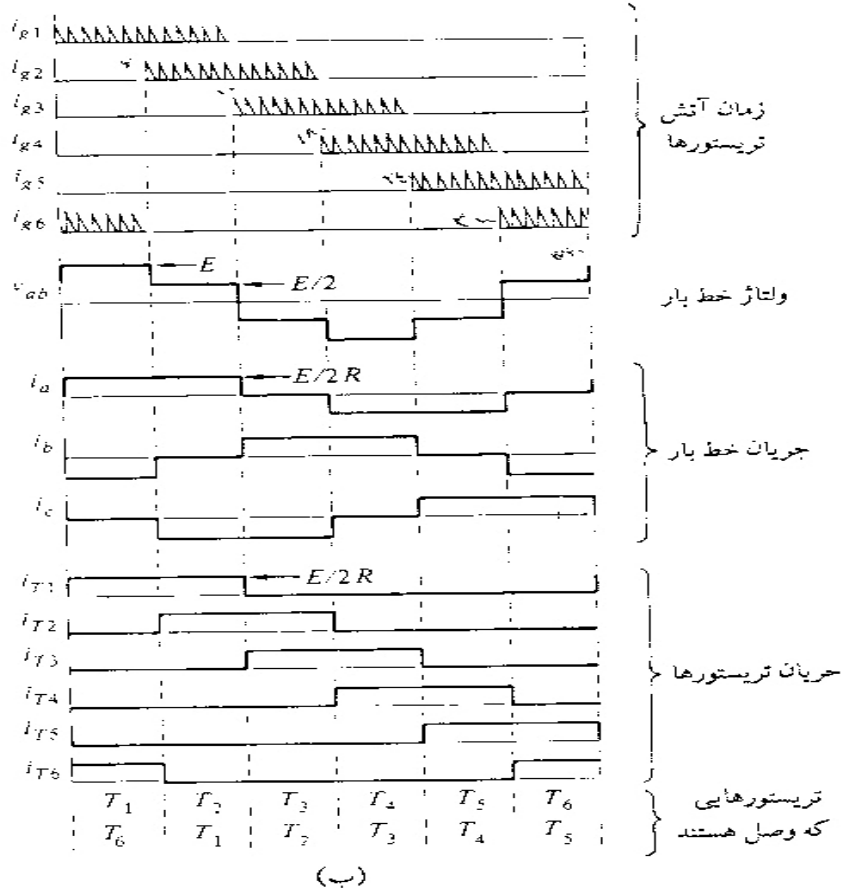 i_g1
i_g2
i_g3
i_g4
i_g5
i_g6
زمان آتش
تریستورها
v_ab
E
E/2
ولتاژ خط بار
i_a
E/2R
i_b
i_c
جریان خط بار
i_T1
E/2R
i_T2
i_T3
i_T4
i_T5
i_T6
جریان تریستورها
T_1 T_2 T_3 T_4 T_5 T_6
T_6 T_1 T_2 T_3 T_4 T_5
تریستورهایی
که وصل هستند
(ب)